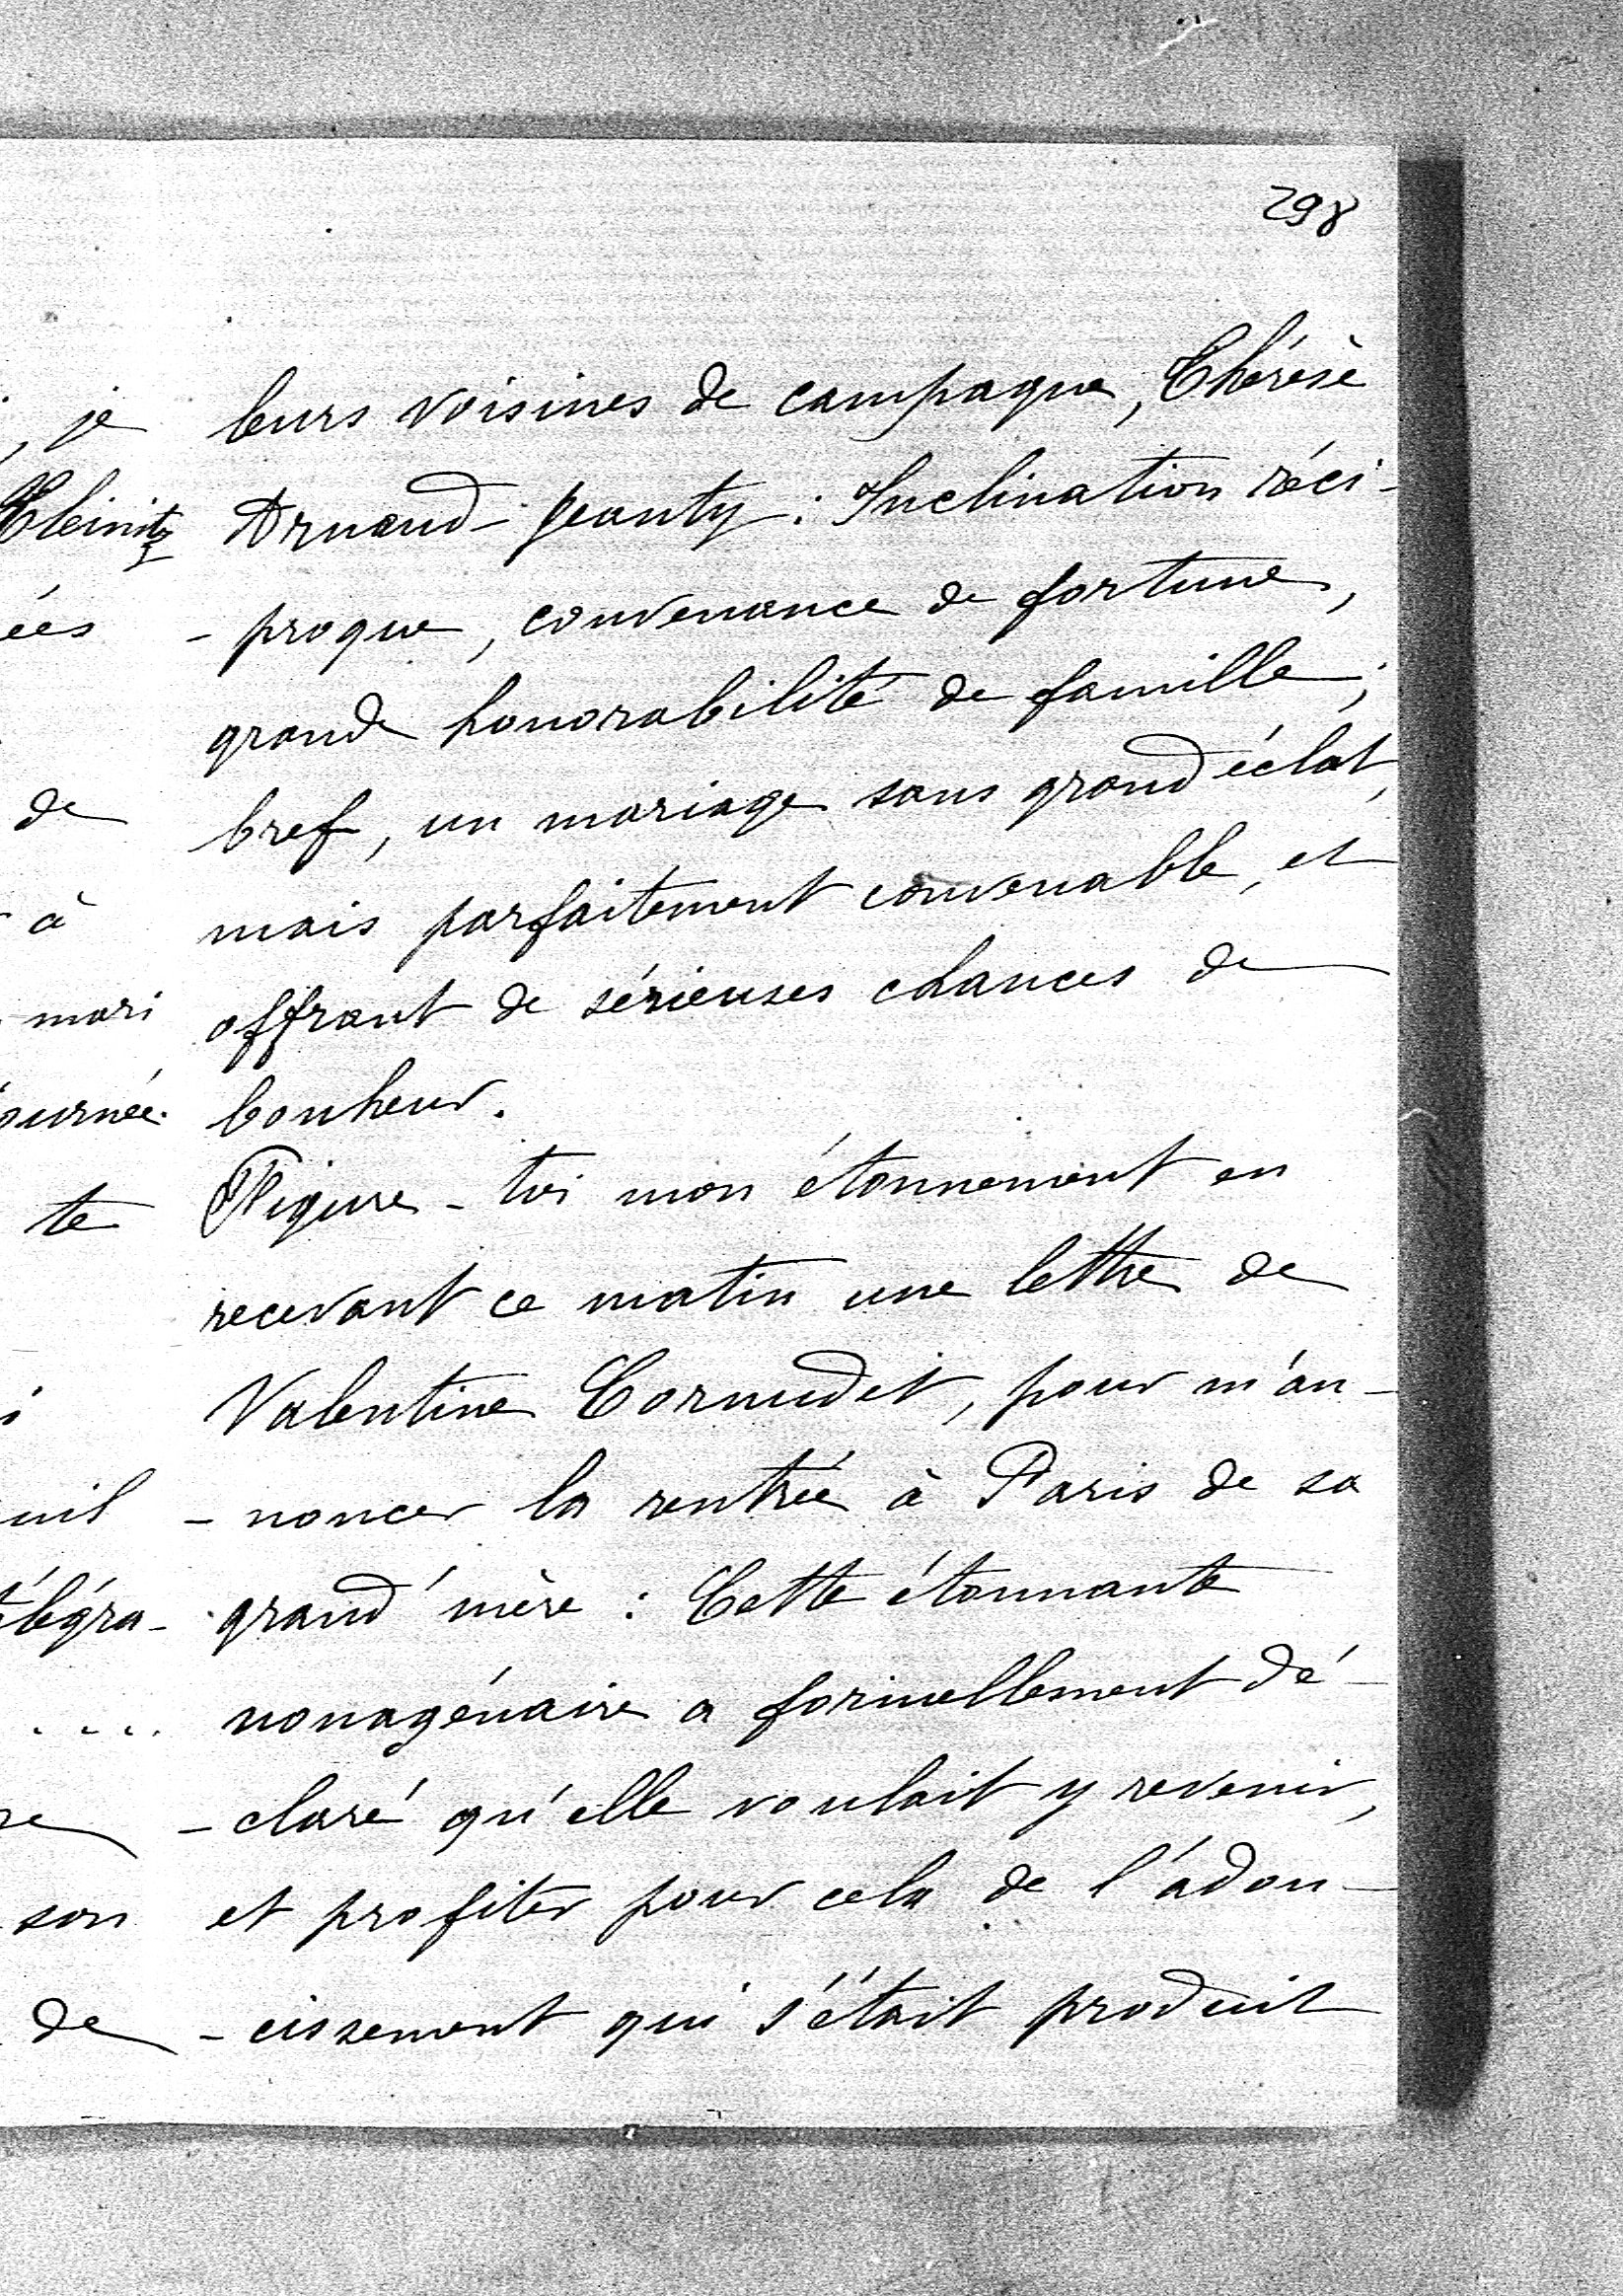 298
, je
leurs voisines de campagne, Thérèse
Arnaud-Jeanty : Inclination réci-
ées
- proque, convenance de fortune,
grande honorabilité de famille ;
de
bref, un mariage sans grand éclat,
à
mais parfaitement convenable, et
mari
offrant de sérieuses chances de
bonheur.
te
Figure-toi mon étonnement en
recevant ce matin une lettre de
Valentine Cornudet, pour m'an-
- noncer la rentrée à Paris de sa
grand'mère : Cette étonnante
....
nonagénaire a formellement dé-
- claré qu'elle voulait y revenir,
son
et profiter pour cela de l'adou-
de
- cissement qui s'était produit